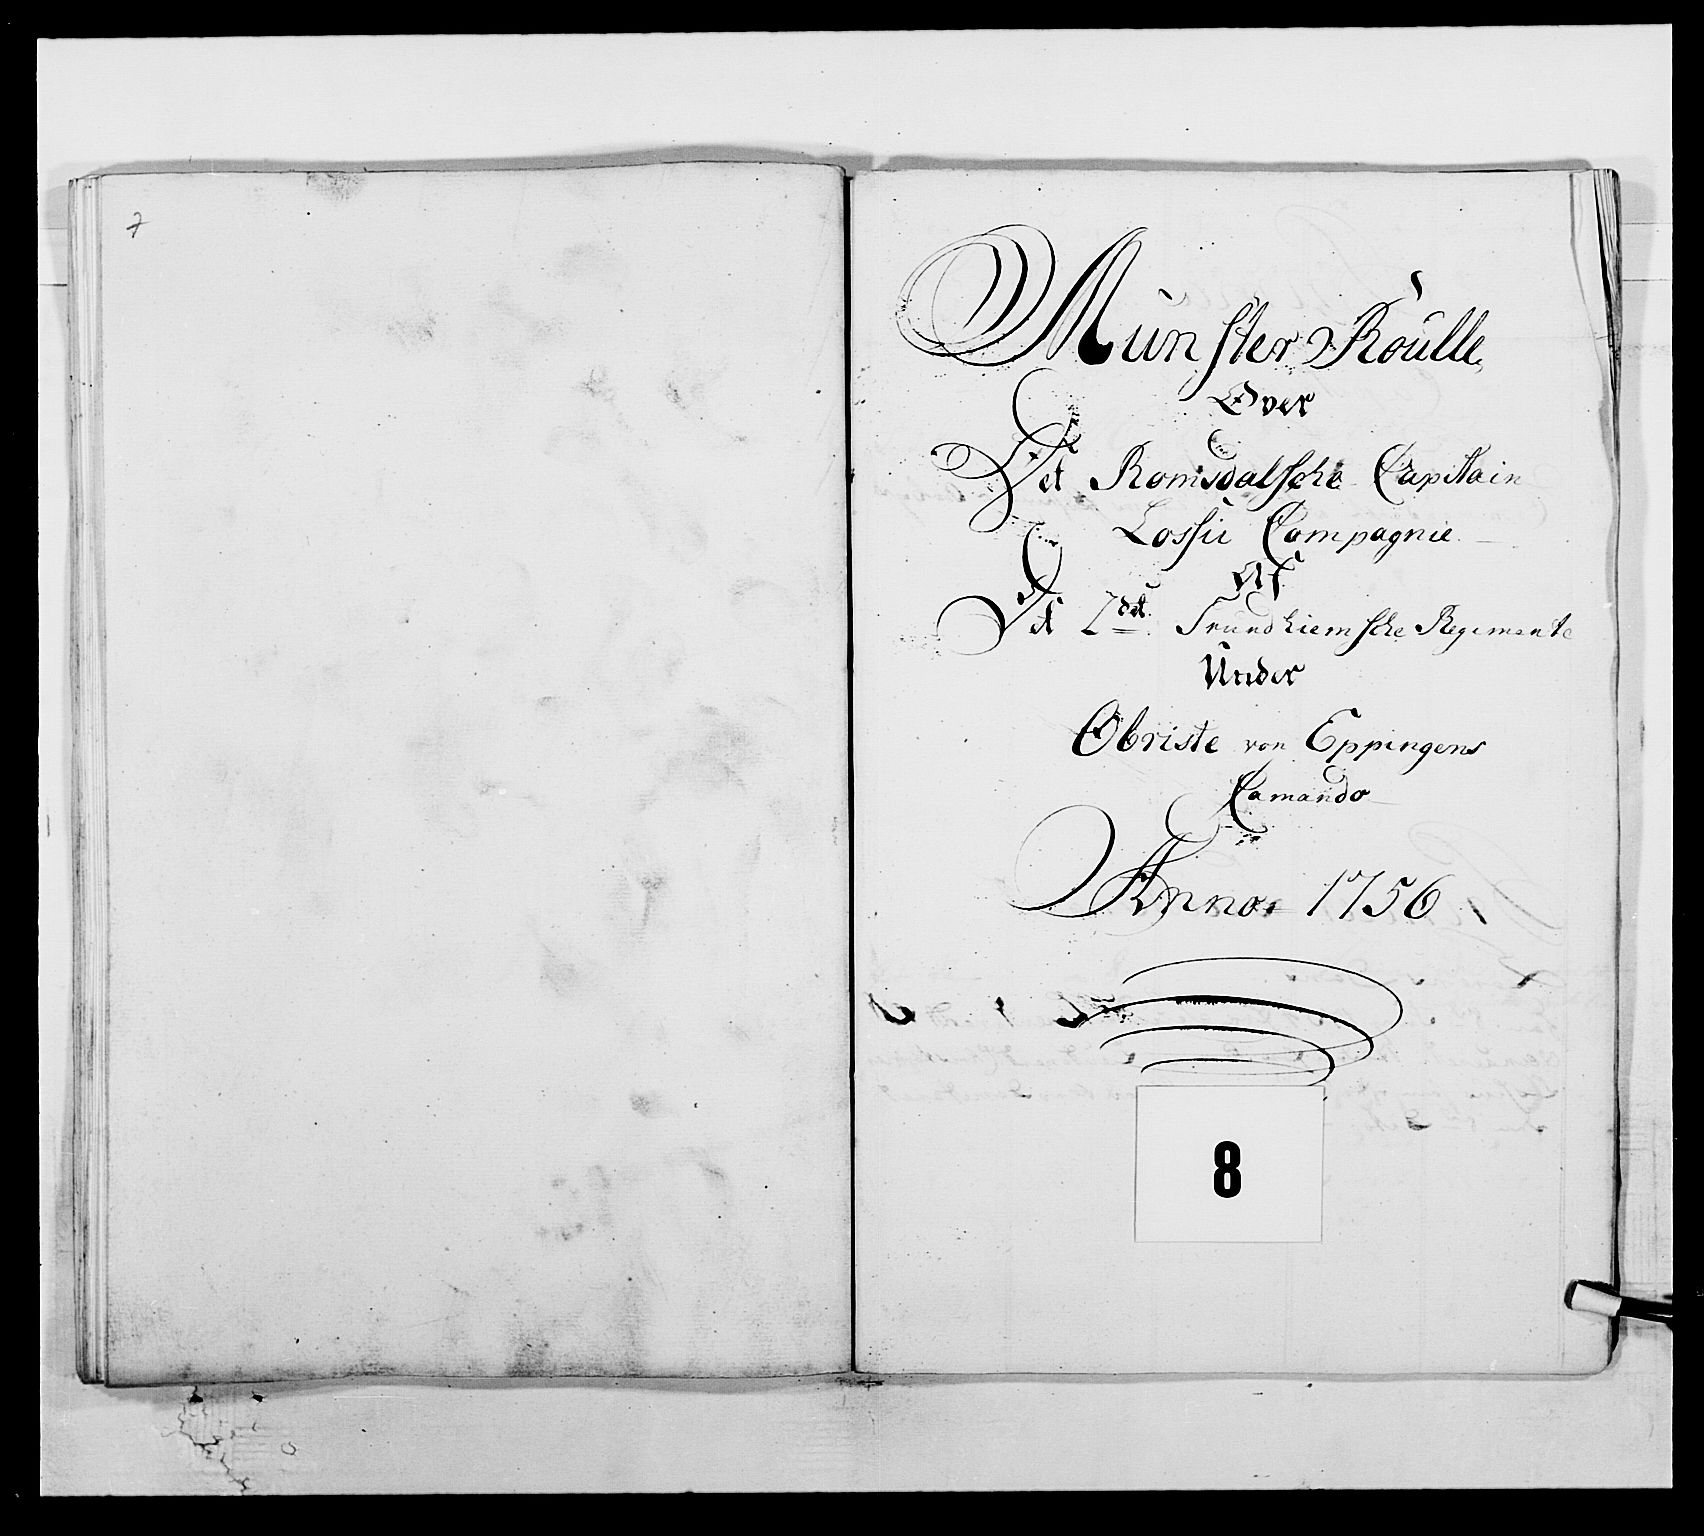 7
Münster Roülle,
Over
Det Romsdalsche Capitain
Lossii Compagnie
Af
Det 2det Trundhiemsche Regimente
Under
Obriste von Eppingens
Camando
Anno 1756
8